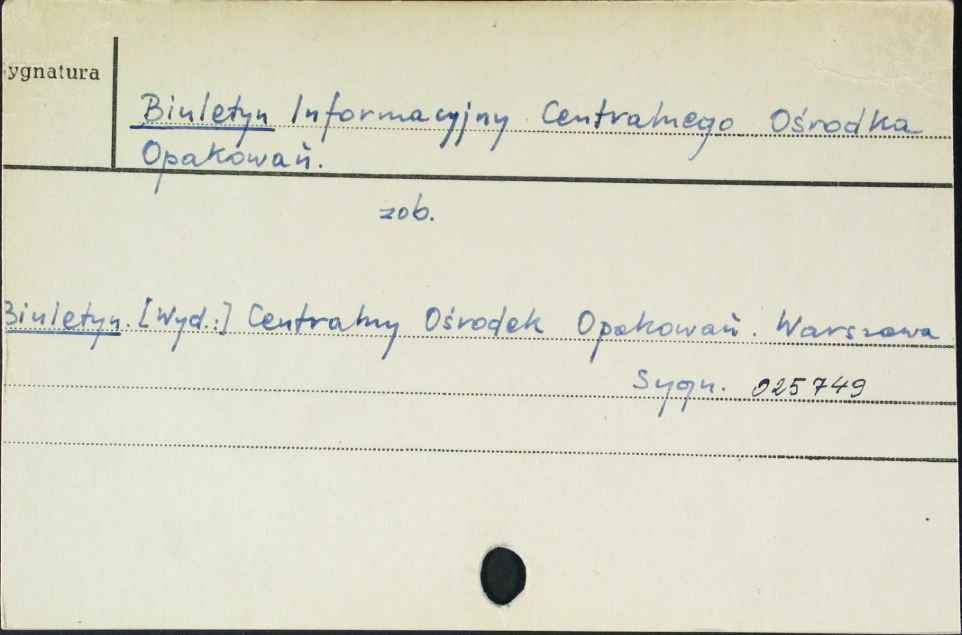 Sygnatura
Biuletyn Informacyjny Centralnego Ośrodka
Opakowań.
zob.
Biuletyn. [Wyd.:] Centralny Ośrodek Opakowań. Warszawa
Sygn. 025749